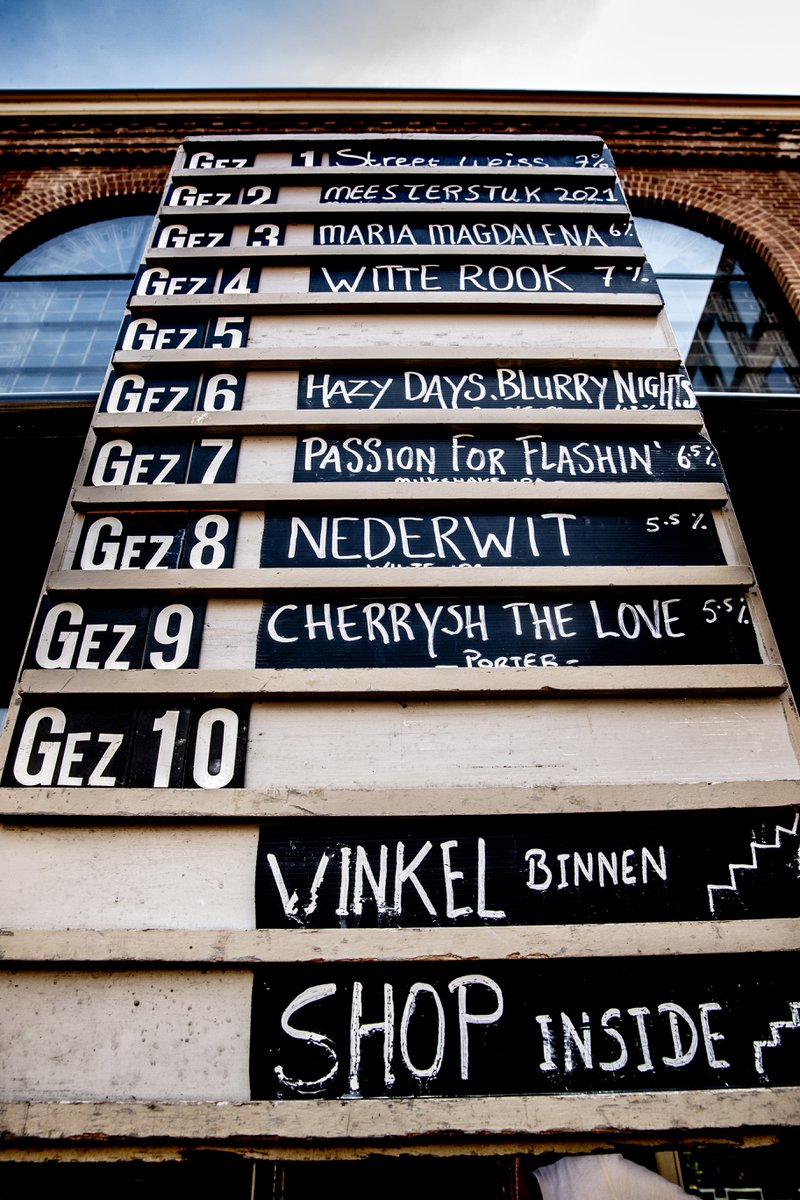 GEZ 1 Street Weiss 7%
GEZ 2 MEESTERSTUK 2021
GEZ 3 MARIA MAGDALENA 6%
GEZ 4 WITTE ROOK 7%
GEZ 5
GEZ 6 HAZY DAYS. BLURRY NIGHTS
GEZ 7 PASSION FOR FLASHIN' 6.5%
MILKSHAKE IPA -
GEZ 8 NEDERWIT 5.5%
GEZ 9 CHERRYSH THE LOVE 5.5%
- PORTER -
GEZ 10
WINKEL BINNEN
SHOP INSIDE